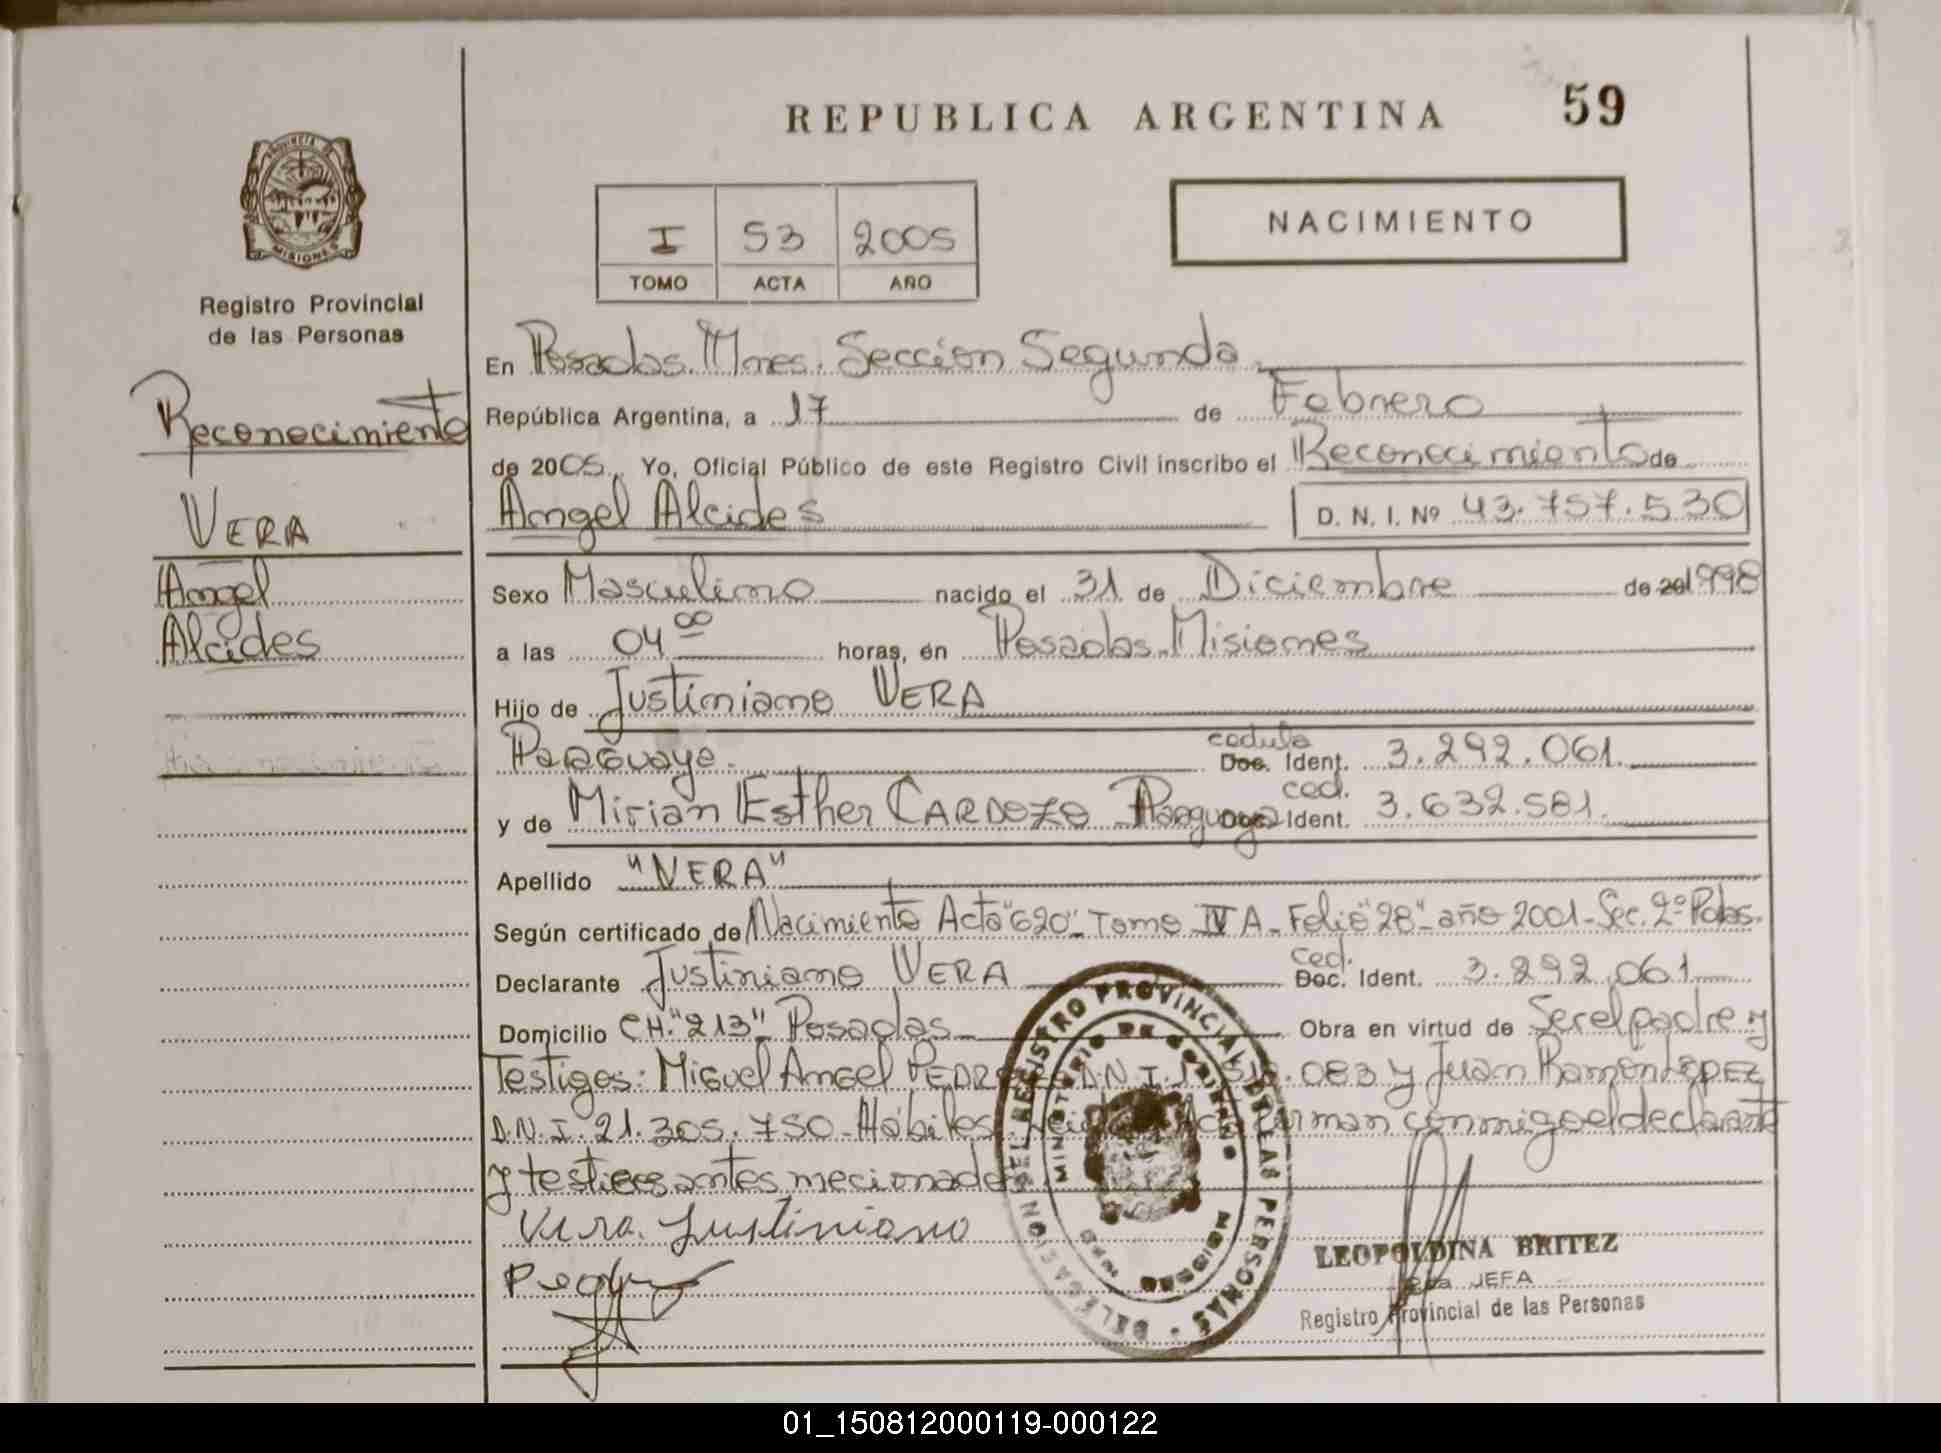 REPUBLICA ARGENTINA 59
PROVINCIA DE MISIONES
I 53 2005
TOMO ACTA AÑO
NACIMIENTO
Registro Provincial
de las Personas
Reconocimiento
VERA
Angel
Alcides
En Posadas. Mnes. Seccion Segunda
República Argentina, a 17 de Febrero
de 2005. Yo, Oficial Público de este Registro Civil inscribo el Reconocimiento de
Angel Alcides D. N. I. Nº 43.757.530
Sexo Masculino nacido el 31 de Diciembre de 20 1998
a las 04 00 horas, en Posadas. Misiones
Hijo de Justiniano VERA
Paraguayo. cedula Doc. Ident. 3.292.061.
y de Mirian Esther CARDOZO Paraguaya ced. Doc. Ident. 3.632.581.
Apellido "VERA"
Según certificado de Nacimiento Acta "620" - Tomo IV A - Folio "28" - año 2001 - Sec. 2º Pdas.
Declarante Justiniano VERA Ced. Doc. Ident. 3.292.061
Domicilio CH. "213" - Posadas Obra en virtud de Ser el padre y
Testigos: Miguel Angel D.N.I. 083 y Juan Ramon LOPEZ
D.N.I. 21.305.750 - Hábiles. firman conmigo el declarante
y testigos antes mecionados
Vera. Justiniano
DELEGACION DEL REGISTRO PROVINCIAL DE LAS PERSONAS
MINISTERIO DE GOBIERNO
LEOPOLDINA BRITEZ
2da JEFA
Registro Provincial de las Personas
01_150812000119-000122